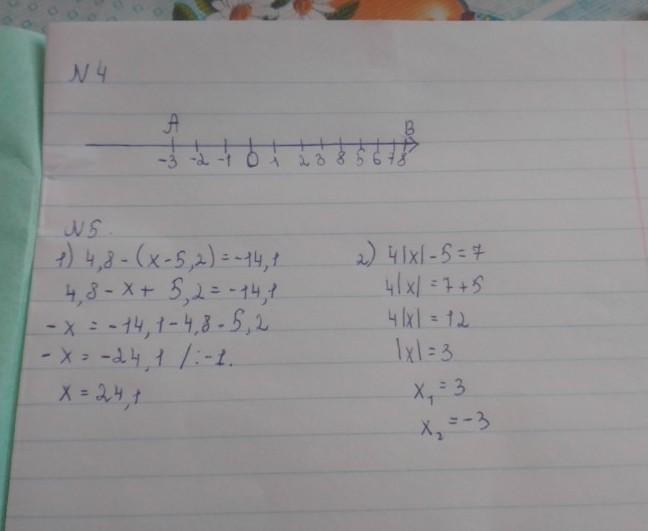 N4
A B
-3 -2 -1 0 1 2 3 8 5 6 7 8
N5.
1) 4,8-(x-5,2)=-14,1
4,8-x+5,2=-14,1
-x=-14,1-4,8-5,2
-x=-24,1 /:-1.
x=24,1
2) 4|x|-5=7
4|x|=7+5
4|x|=12
|x|=3
x₁=3
x₂=-3